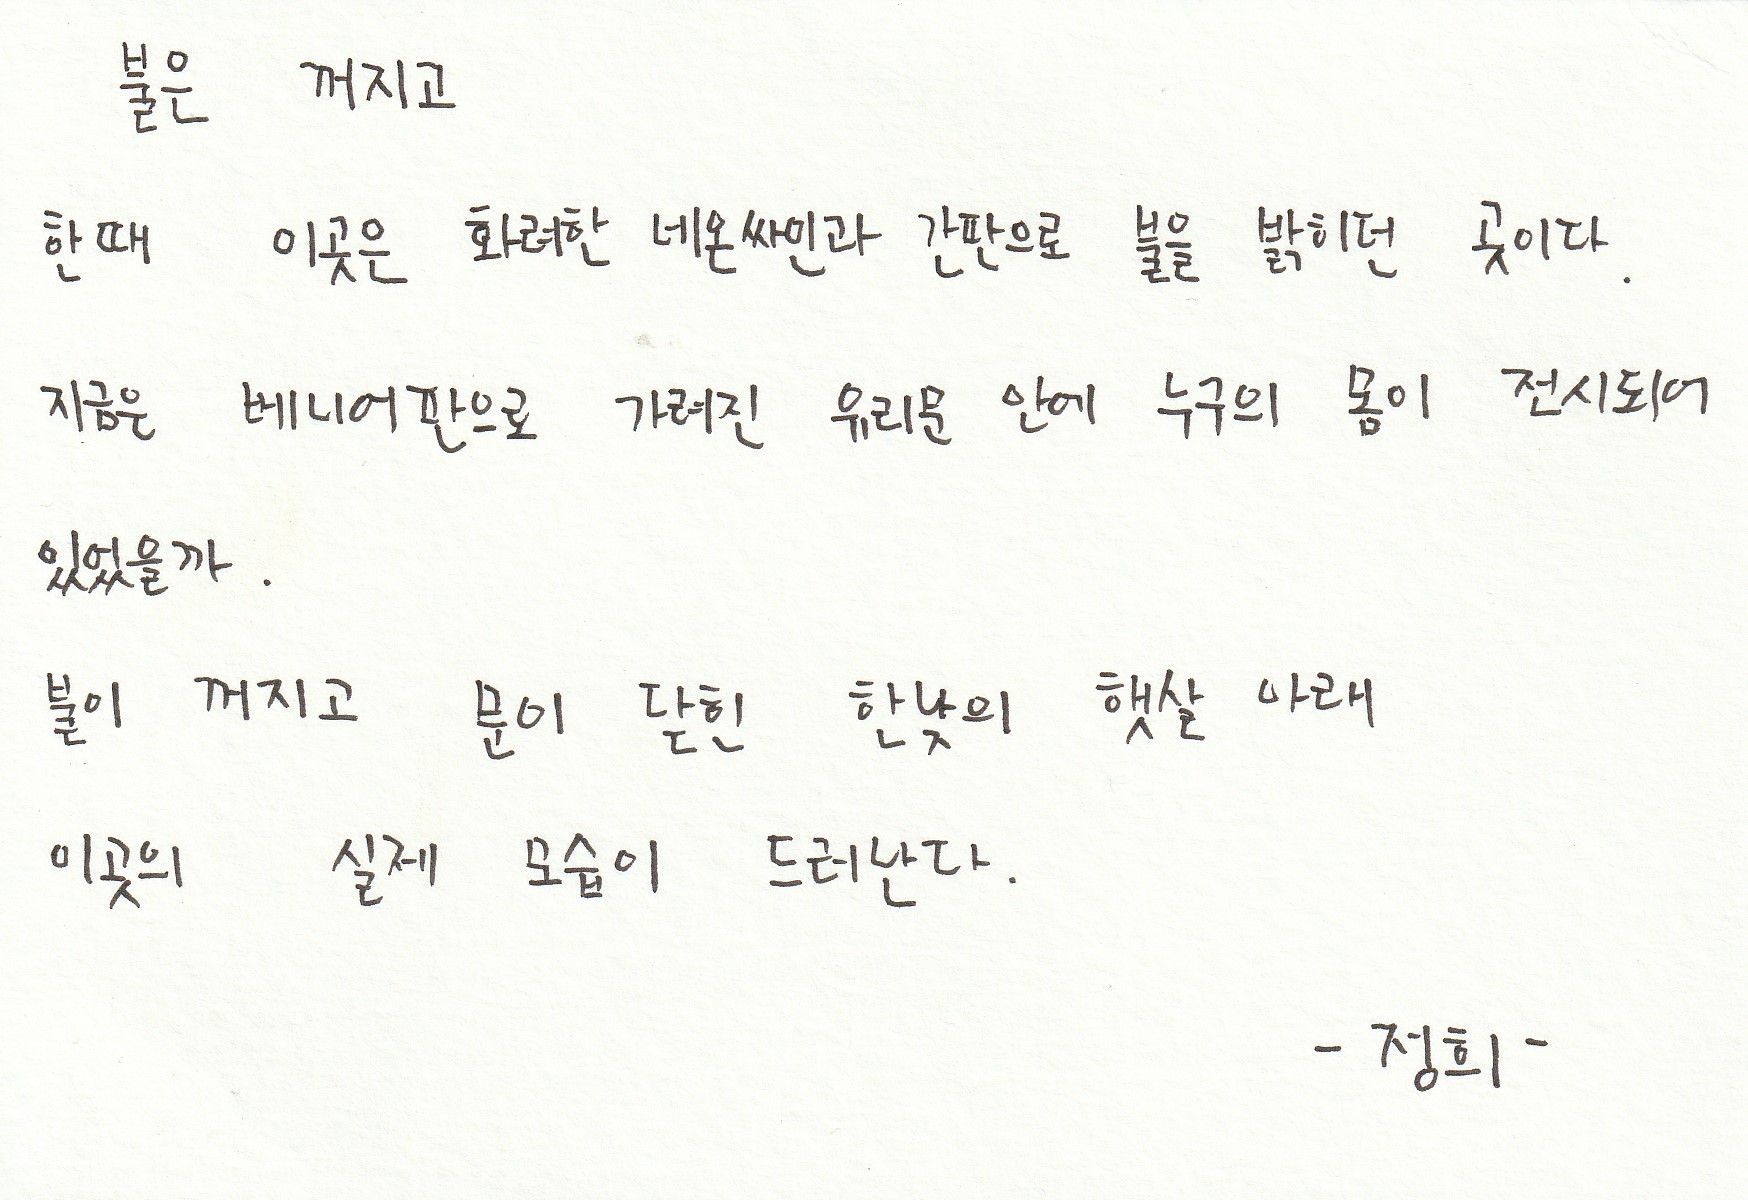 불은 꺼지고
한때 이곳은 화려한 네온싸인과 간판으로 불을 밝히던 곳이다.
지금은 베니어판으로 가려진 유리문 안에 누구의 몸이 전시되어
있었을까.
불이 꺼지고 문이 닫힌 한낮의 햇살 아래
이곳의 실제 모습이 드러난다.
- 정희 -